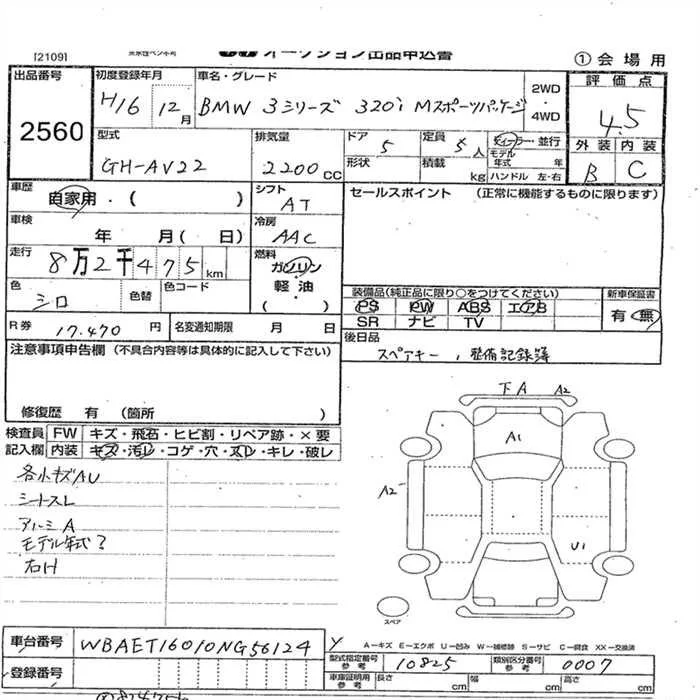 [2109]
オークション出品申込書
① 会場用
出品番号
2560
初度登録年月
H16 12月
車名・グレード
BMW 3シリーズ 320i Mスポーツパッケージ
2WD・4WD
評価点
4.5
外装 内装
B C
型式
GH-AV22
排気量
2200 CC
ドア 5
形状
定員 5 人
積載 kg
ディーラー・並行
モデル年式 年
ハンドル 左・右
車歴
自家用・( )
シフト
AT
セールスポイント (正常に機能するものに限ります)
車検
年 月( 日)
冷房
AAC
走行
8万2千475km
燃料
ガソリン
軽油
( )
色
シロ
色替
色コード
装備品(純正品に限り○をつけてください)
PS PW ABS エアB
SR ナビ TV
新車保証書
有 無
R券 17.470 円
名変通知期限 月 日
後日品
スペアキー, 整備記録簿
注意事項申告欄 (不具合内容等は具体的に記入して下さい)
修復歴 有 (箇所 )
検査員 FW キズ・飛石・ヒビ割・リペア跡・×要
記入欄 内装 キズ・汚レ・コゲ・穴・スレ・キレ・破レ
各小キズAU
シートスレ
アルミ A
モデル年式?
右H
下A A2
A1
A2
U1
スペア
車台番号
WBAET16010NG56124
A−キズ E−エクボ U−凹み W−補修跡 S−サビ C−腐食 XX−交換済
型式指定番号 参考 10825
類別区分番号 参考 0007
登録番号
車庫証明用 参考 長さ cm 幅 cm 高さ cm